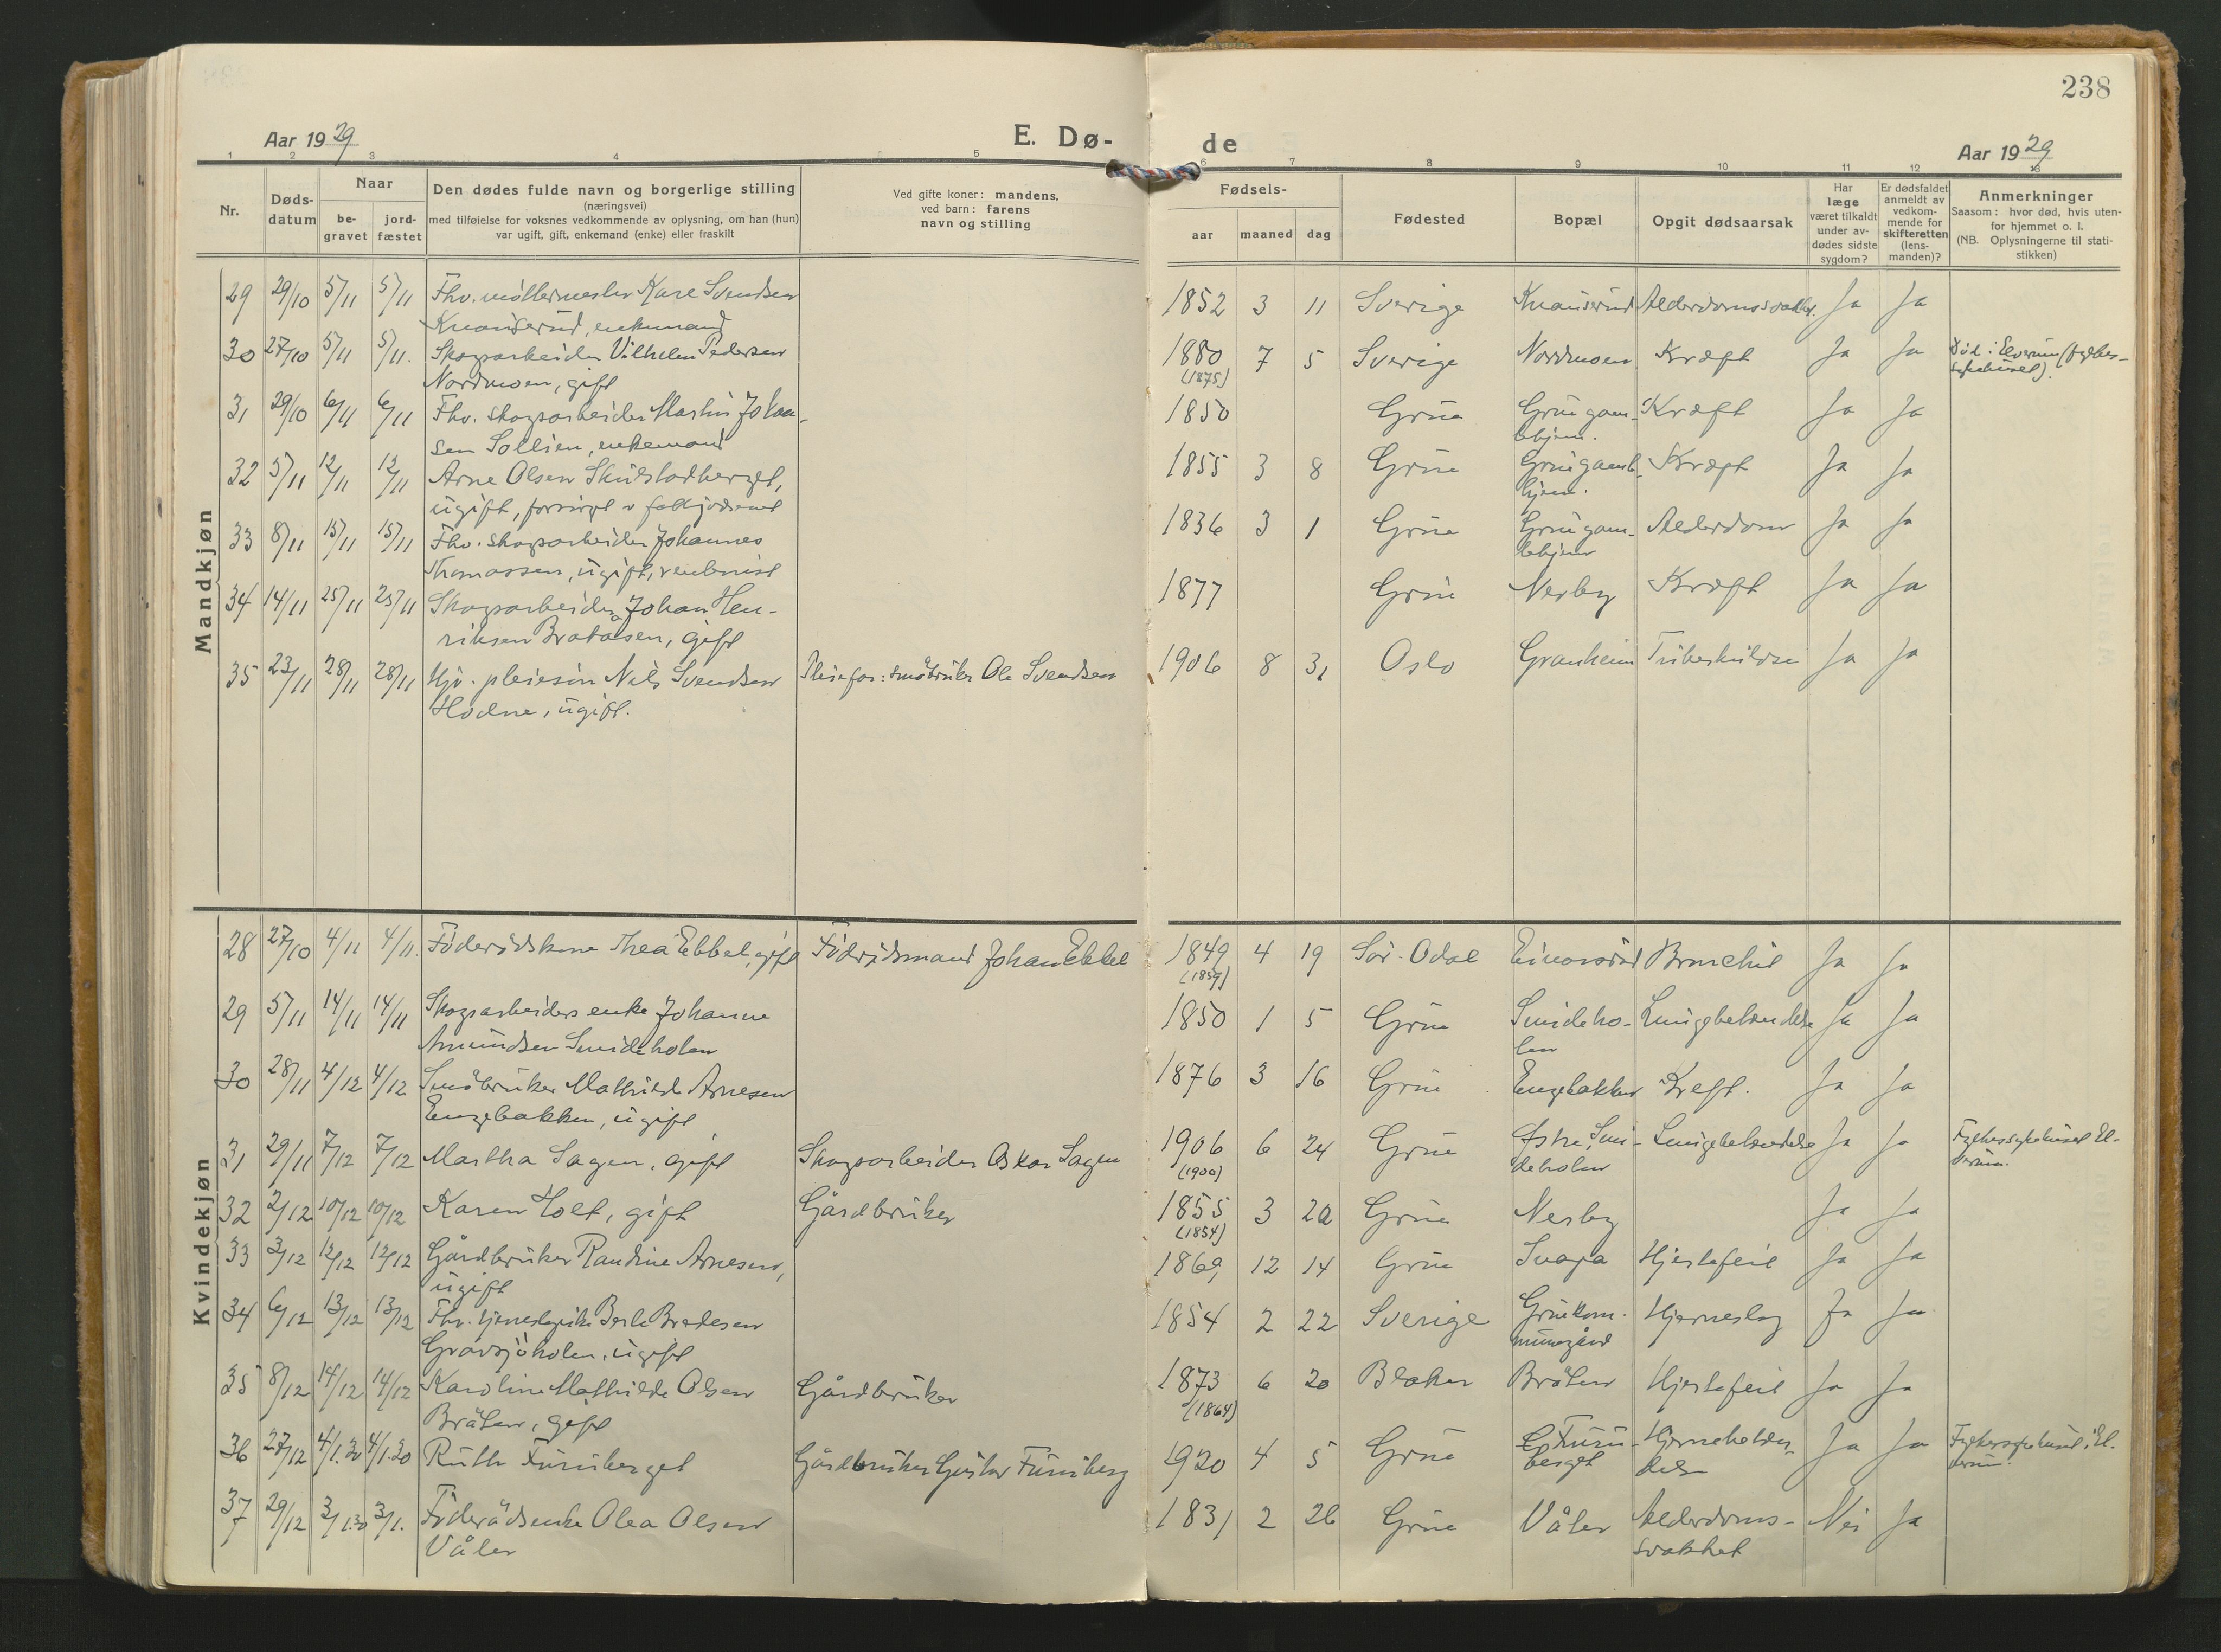 238
Aar 1929
E. Dø-
de
Aar 1929
1 2 3 4 5 6 7 8 9 10 11 12 13
Nr.
Døds-
datum
Naar
be-
gravet
jord-
fæstet
Den dødes fulde navn og borgerlige stilling
(næringsvei)
med tilføielse for voksnes vedkommende av oplysning, om han (hun)
var ugift, gift, enkemand (enke) eller fraskilt
Ved gifte koner: mandens,
ved barn: farens
navn og stilling
Fødsels-
aar maaned dag
Fødested
Bopæl
Opgit dødsaarsak
Har
læge
været tilkaldt
under av-
dødes sidste
sygdom?
Er dødsfaldet
anmeldt av
vedkom-
mende for
skifteretten
(lens-
manden)?
Anmerkninger
Saasom: hvor død, hvis uten-
for hjemmet o. l.
(NB. Oplysningerne til stati-
stikken)
Mandkjøn
29 29/10 5/11 5/11 Fhv. møllermester Kare Svendsen 1852 3 11 Sverige Knauserud Alderdomssvakh. Ja Ja
Knauserud, enkemand
30 27/10 5/11 5/11. Skogsarbeider Vilhelm Pedersen 1880 7 5 Sverige Nordmoen Kræft Ja Ja Død i Elverum (fylkes-
Nordmoen, gift (1875) sykehuset).
31 29/10 6/11 6/11 Fhv. skogsarbeider Martin Johan- 1850 Grue Grue gam- Kræft Ja Ja
sen Sollien, enkemand lehjem.
32 5/11 12/11 12/11 Arne Olsen Skulstadberget, 1855 3 8 Grue Grue gamle Kræft Ja Ja
ugift, forsørget v fattigvæsenet hjem.
33 8/11 15/11 15/11 Fhv. skogsarbeider Johannes 1836 3 1 Grue Grue gam- Alderdom Ja Ja
Thomassen, ugift, lehjem
34 14/11 25/11 25/11 Skogsarbeider Johan Hen- 1877 Grue Nerby Kræft Ja Ja
riksen Bratåsen, gift
35 23/11 28/11 28/11 Hjv. pleiesøn Nils Svendsen Pleiefar: småbruker Ole Svendsen 1906 8 31 Oslo Granheim Tuberkulose Ja Ja
Hodne, ugift.
Kvindekjøn
28 27/10 4/11 4/11. Føderådskone Thea Ebbel, gift Føderådsmand Johan Ebbel 1849 4 19 Sør-Odal Bronchit Ja Ja
(1859)
29 5/11 14/11 14/11 Skogsarbeiders enke Johanne 1850 1 5 Grue Smideho- Lungebetændelse Ja Ja
Amundsen Smideholen len
30 28/11 4/12 4/12 Småbruker Mathilde Arnesen 1876 3 16 Grue Engebakken Kreft. Ja Ja
Engebakken, ugift
31 29/11 7/12 7/12 Martha Sagen, gift Skogsarbeider Oskar Sagen 1906 6 24 Grue Østre Smi- Lungebetændelse Ja Ja Fylkessykehuset El-
(1900) deholen verum.
32 2/12 10/12 10/12 Karen Holt, gift Gårdbruker 1855 3 20 Grue Nerby Ja Ja
(1854)
33 3/12 12/12 12/12 Gårdbruker Randine Arnesen, 1869 12 14 Grue Svapa Hjertefeil Ja Ja
ugift
34 6/12 13/12 13/12 Fhv. tjenestepike Berte Bredesen 1854 2 22 Sverige Grue kom- Hjerneslag Ja Ja
Gravsjøholen, ugift munegård
35 8/12 14/12 14/12 Karoline Mathilde Olsen Gårdbruker 1873 6 20 Blaker Bråten Hjertefeil Ja Ja
Bråten, gift (1864)
36 27/12 4/1.30 4/1.30 Ruth Furuberget Gårdbruker Gustav Furuberg 1920 4 5 Grue Furu- Hjernebetæn- Ja Ja Fylkessykehuset i El-
berget delse verum.
37 29/12 3/1.30 3/1. Føderådsenke Olea Olsen 1831 2 26 Grue Våler Alderdoms- Nei Ja
Våler svakhet